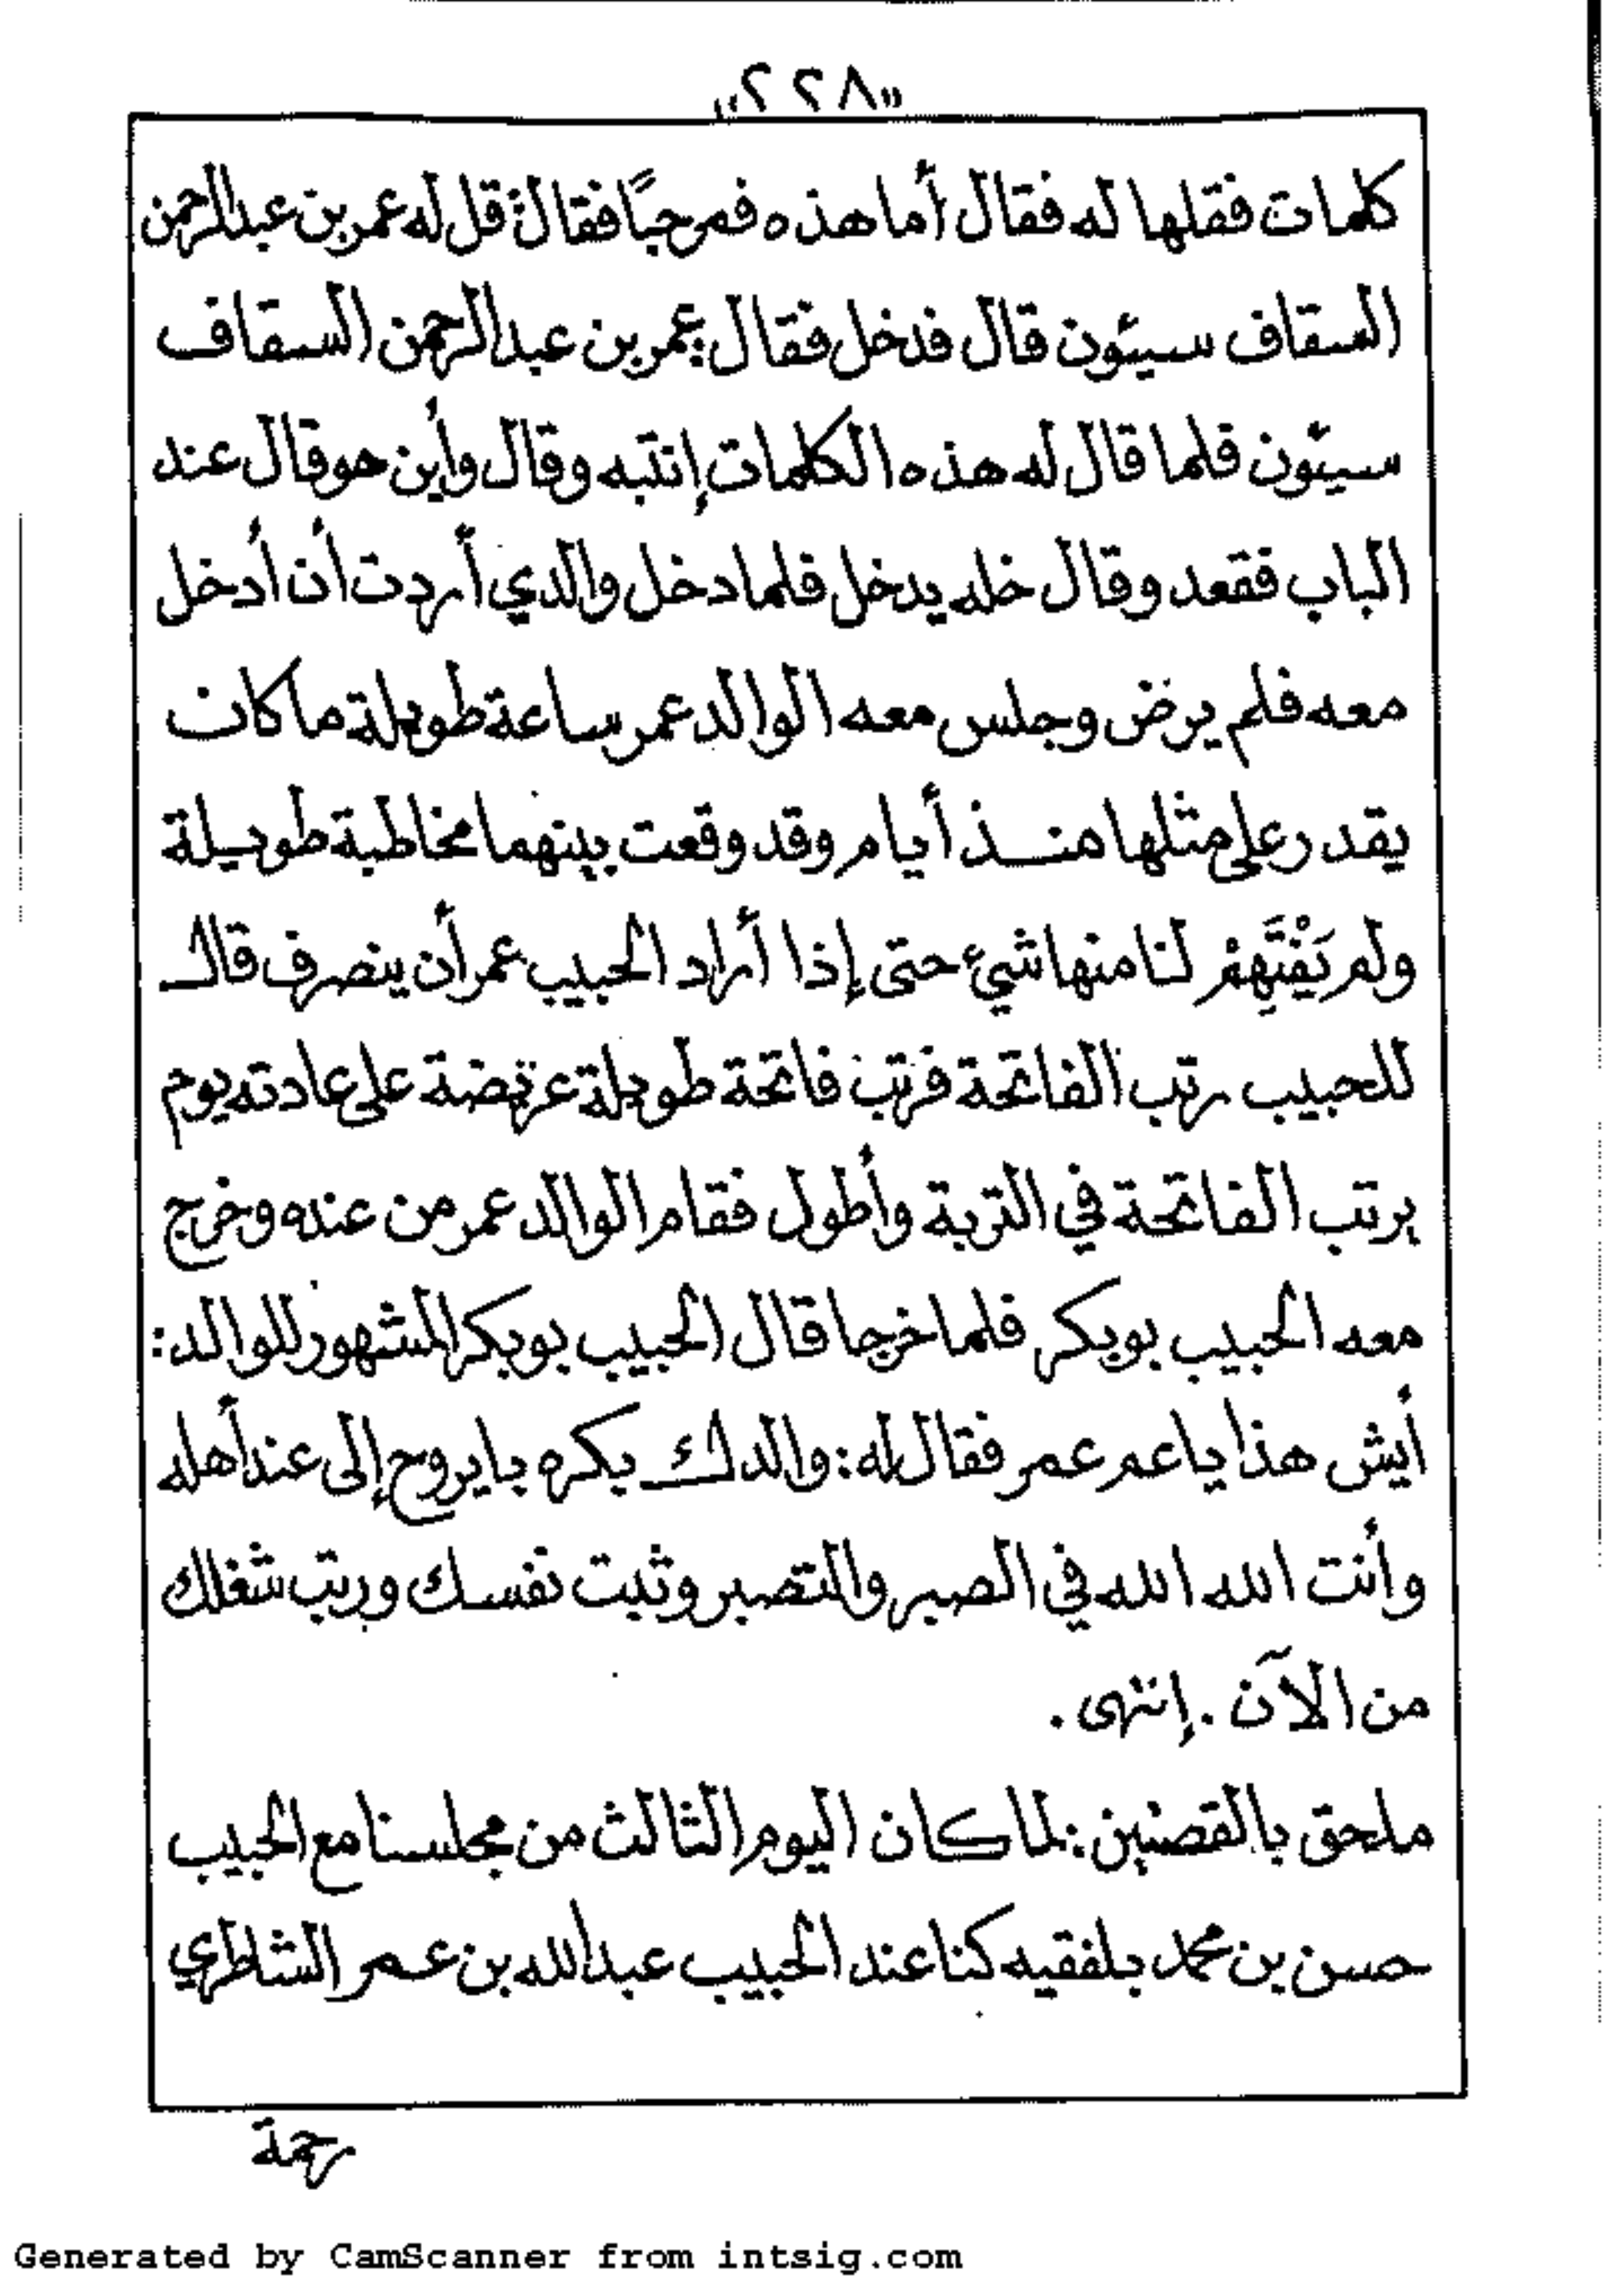 «٢٢٨»
كلمات فقلها له فقال أما هذه فمرحبًا فقال: قل له عمر بن عبدالرحمن
السقاف سيئون قال فدخل فقال: عمر بن عبدالرحمن السقاف
سيئون فلما قال له هذه الكلمات إنتبه وقال وأين هو قال عند
الباب فقعد وقال خله يدخل فلما دخل والدي أردت أن أدخل
معه فلم يرض وجلس معه الوالد عمر ساعة طويلة ما كان
يقدر على مثلها منذ أيام وقد وقعت بينهما مخاطبة طويلة
ولم يَفْتَهِمْ لنا منها شيء حتى إذا أراد الحبيب عمر أن ينصرف قال
للحبيب رتب الفاتحة فرتب فاتحة طويلة عريضة على عادته يوم
يرتب الفاتحة في التربة وأطول فقام الوالد عمر من عنده وخرج
معه الحبيب بوبكر فلما خرجا قال الحبيب بوبكر المشهور للوالد:
أيش هذا يا عم عمر فقال له: والدك بكره با يروح إلى عند أهله
وأنت الله الله في الصبر والتصبر وثبت نفسك ورتب شغلك
من الآن. إنتهى.
ملحق بالقصتين: لما كان اليوم الثالث من مجلسنا مع الحبيب
حسن بن محمد بلفقيه كنا عند الحبيب عبدالله بن عمر الشاطري
رحمة
Generated by CamScanner from intsig.com